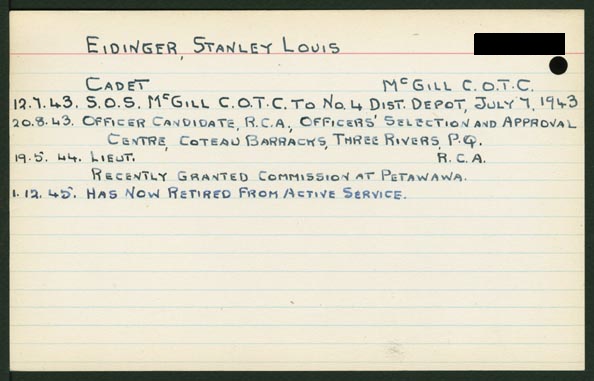 Eidinger, Stanley Louis
Cadet McGill C.O.T.C.
12.7.43. S.O.S. McGill C.O.T.C. to No. 4 Dist. Depot, July 7, 1943
20.8.43. Officer Candidate, R.C.A., Officers' Selection and Approval
Centre, Coteau Barracks, Three Rivers, P.Q.
19.5.44. Lieut. R.C.A.
Recently Granted Commission at Petawawa.
1.12.45. Has Now Retired From Active Service.